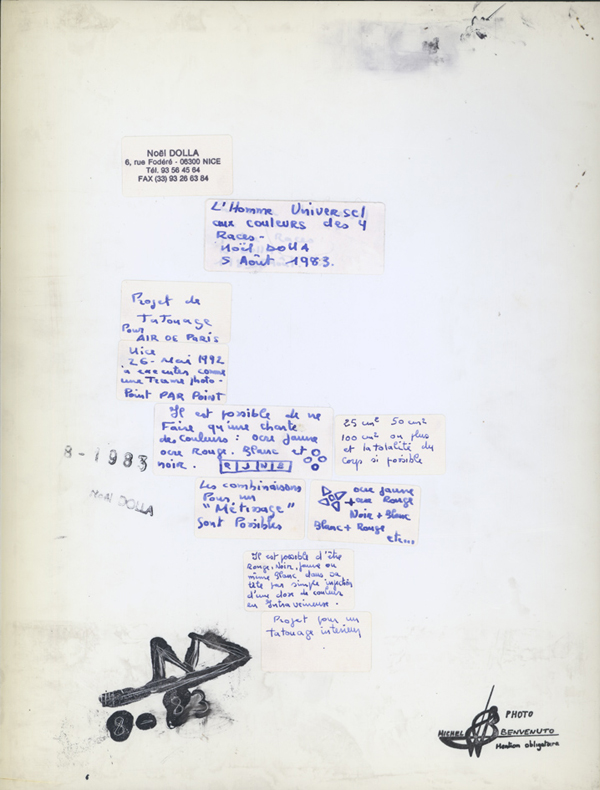 Noël DOLLA
6, rue Fodéré - 06300 NICE
Tél. 93 56 45 64
FAX (33) 93 26 63 84
L'Homme Universel
aux couleurs des 4
Races -
Noël DOLLA
5 Août 1983.
Projet de
Tatouage
Pour
AIR DE PARIS
Nice
26 - Mai 1992
a executer comme
une Trame photo -
Point PAR POINT
Il est possible de ne
Faire qu'une charte
des couleurs : ocre jaune
ocre Rouge. Blanc et
noir.
R J N B
25 cm² 50 cm²
100 cm² ou plus
et la totalité du
corps si possible
8 - 1983
Noël DOLLA
Les combinaisons
Pour un
"Métissage"
sont Possibles
ocre jaune
+ ocre Rouge
Noir + Blanc
Blanc + Rouge
etc...
Il est possible d'être
Rouge, Noir, jaune ou
même Blanc dans sa
tête par simple injection
d'une dose de couleur
en Intraveineuse.
Projet pour un
tatouage interieur
ND
8 - 83
PHOTO
MICHEL BENVENUTO
Mention obligatoire